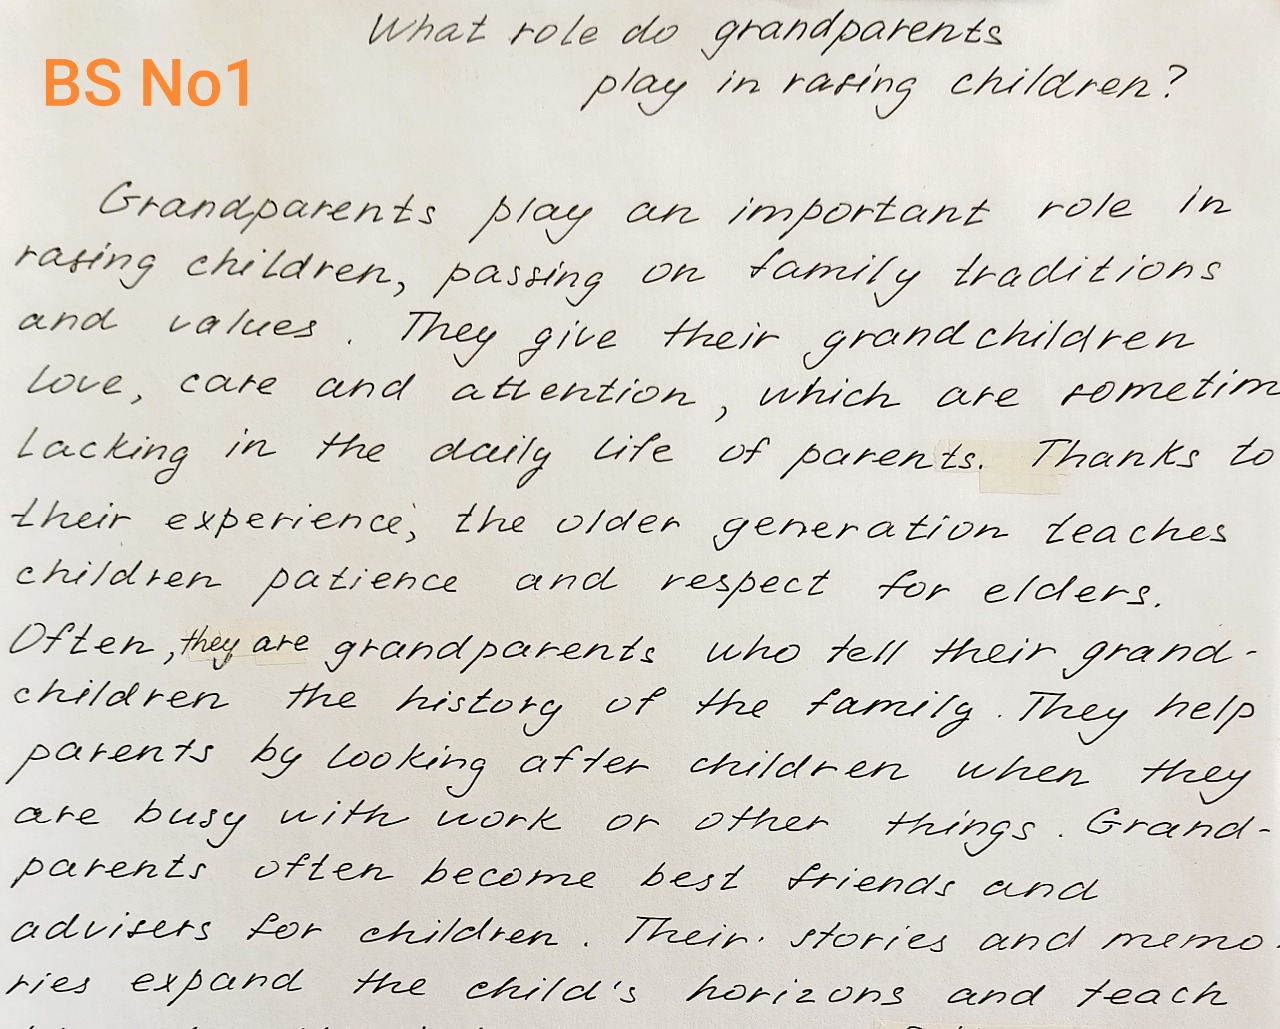 What role do grandparents
BS No1
play in rasing children?
Grandparents play an important role in
rasing children, passing on family traditions
and values. They give their grandchildren
love, care and attention, which are sometim
lacking in the daily life of parents. Thanks to
their experience, the older generation teaches
children patience and respect for elders.
Often, they are grandparents who tell their grand-
children the history of the family. They help
parents by looking after children when they
are busy with work or other things. Grand-
parents often become best friends and
advisers for children. Their stories and memo-
ries expand the child's horizons and teach